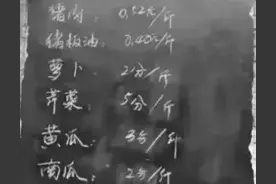 猪肉: 0.52元/斤
猪板油: 0.40元/斤
萝卜: 2分/斤
芹菜: 5分/斤
黄瓜: 3分/斤
南瓜: 2分/斤